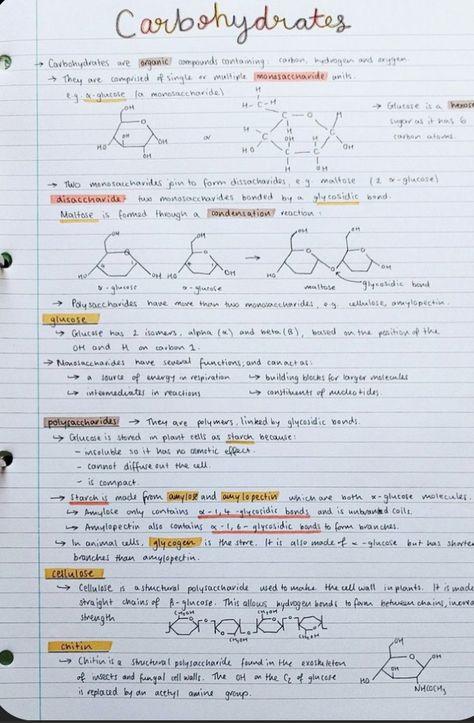 Carbohydrates
→ Carbohydrates are organic compounds containing: carbon, hydrogen and oxygen.
→ They are comprised of single or multiple monosaccharide units.
e.g. α-glucose (a monosaccharide)
→ Glucose is a hexose
sugar as it has 6
carbon atoms.
OH
HO
OH
OH
OH
or
H
H-C-H
C
O
H
C
OH
H
C
HO
C
C
OH
H
OH
→ Two monosaccharides join to form dissacharides, e.g. maltose (2 α-glucose)
disaccharide two monosaccharides bonded by a glycosidic bond.
Maltose is formed through a condensation reaction:
OH
HO
OH
OH
HO
OH
→
OH
OH
HO
O
OH
α-glucose
α-glucose
maltose
glycosidic bond
→ Polysaccharides have more than two monosaccharides, e.g. cellulose, amylopectin.
glucose
↳ Glucose has 2 isomers, alpha (α) and beta (β), based on the position of the
OH and H on carbon 1.
→ Monosaccharides have several functions, and can act as:
↳ a source of energy in respiration ↳ building blocks for larger molecules
↳ intermediates in reactions ↳ constituents of nucleotides.
polysaccharides → They are polymers, linked by glycosidic bonds.
↳ Glucose is stored in plant cells as starch because:
- insoluble so it has no osmotic effect.
- cannot diffuse out the cell.
- is compact.
→ Starch is made from amylose and amylopectin which are both α-glucose molecules.
↳ Amylose only contains α-1,4-glycosidic bonds and is unbranched coils.
↳ Amylopectin also contains α-1,6-glycosidic bonds to form branches.
↳ In animal cells, glycogen is the store. It is also made of α-glucose but has shorter
branches than amylopectin.
cellulose
↳ Cellulose is a structural polysaccharide used to make the cell wall in plants. It is made
straight chains of β-glucose. This allows hydrogen bonds to form between chains,
strength
CH₂OH
CH₂OH
O
O
O
CH₂OH
CH₂OH
chitin
↳ Chitin is a structural polysaccharide found in the exoskeleton
of insects and fungal cell walls. The OH on the C₂ of glucose
is replaced by an acetyl amine group.
OH
OH
OH
HO
NHCOCH₃